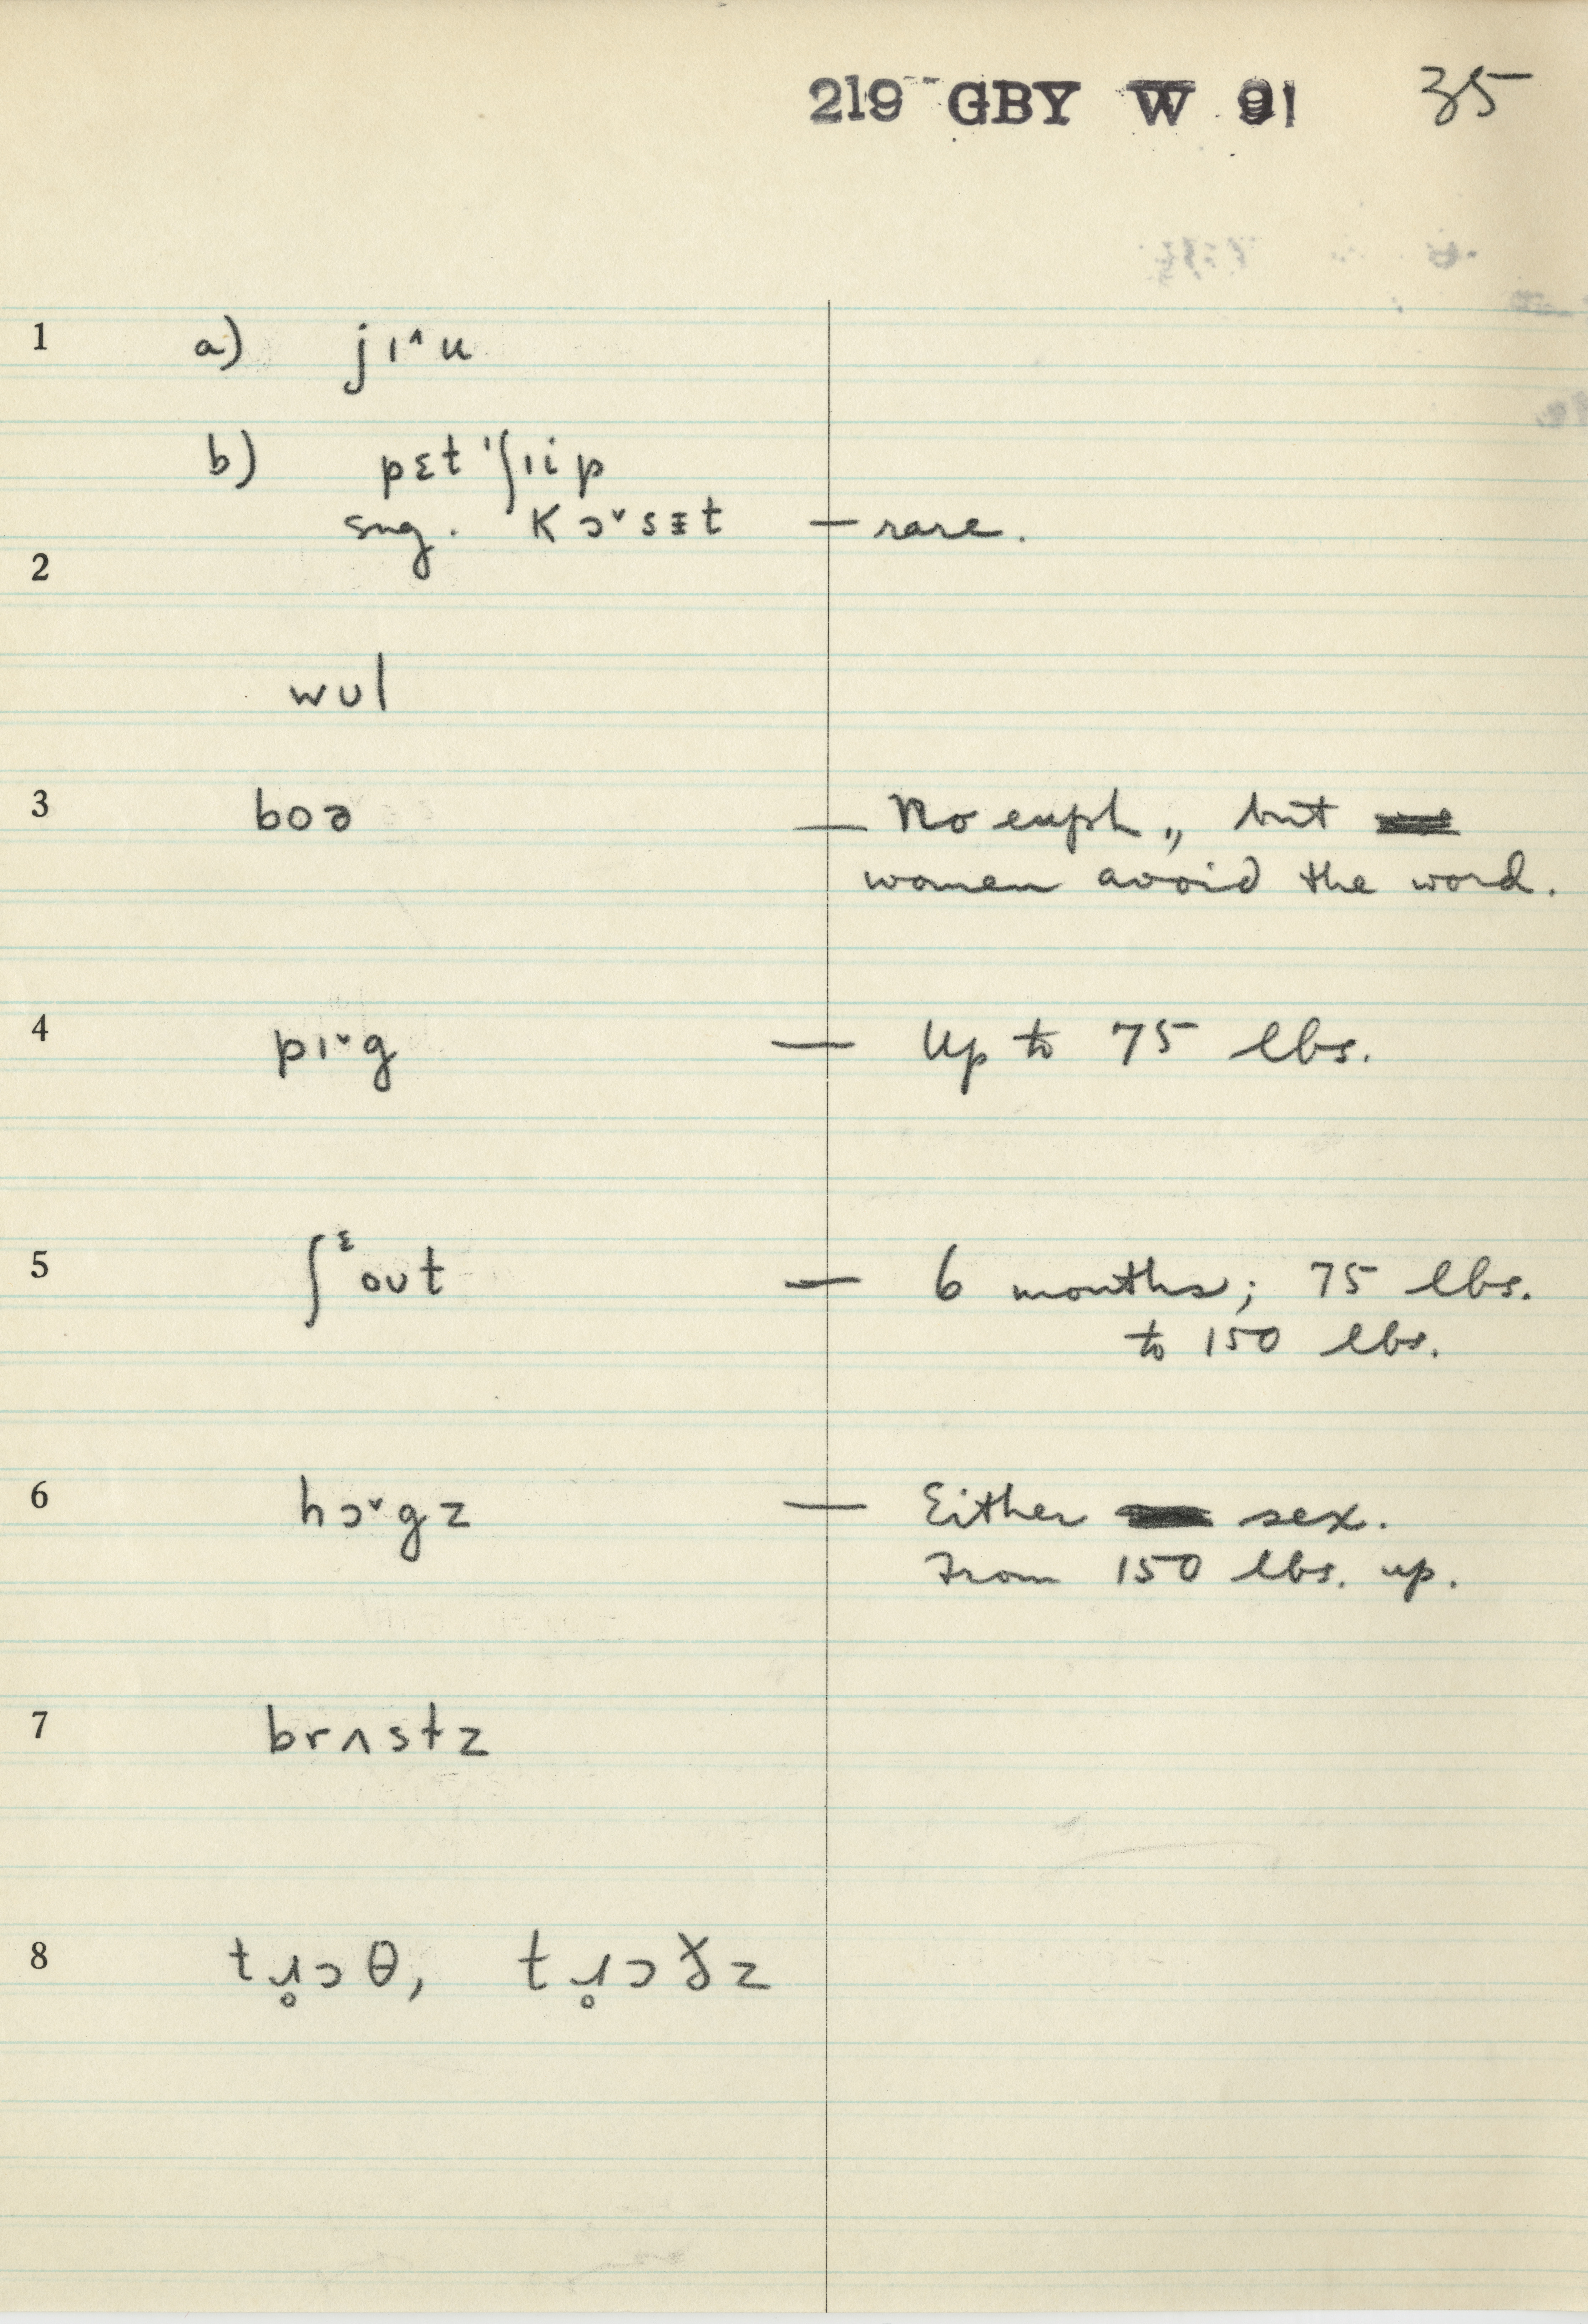 219 GBY W 91 35
1 a) jɪ˄u
b) pɛt ˈʃɪip
sug. kɔ˅sɛt — rare.
2
wʊl
3 boə — No euph., but
women avoid the word.
4 pɪ˅g — Up to 75 lbs.
5 ʃᵋoʊt — 6 months; 75 lbs.
to 150 lbs.
6 hɔ˅gz — Either sex.
From 150 lbs. up.
7 brʌstz
8 tɹ̥ɔθ, tɹ̥ɔðz